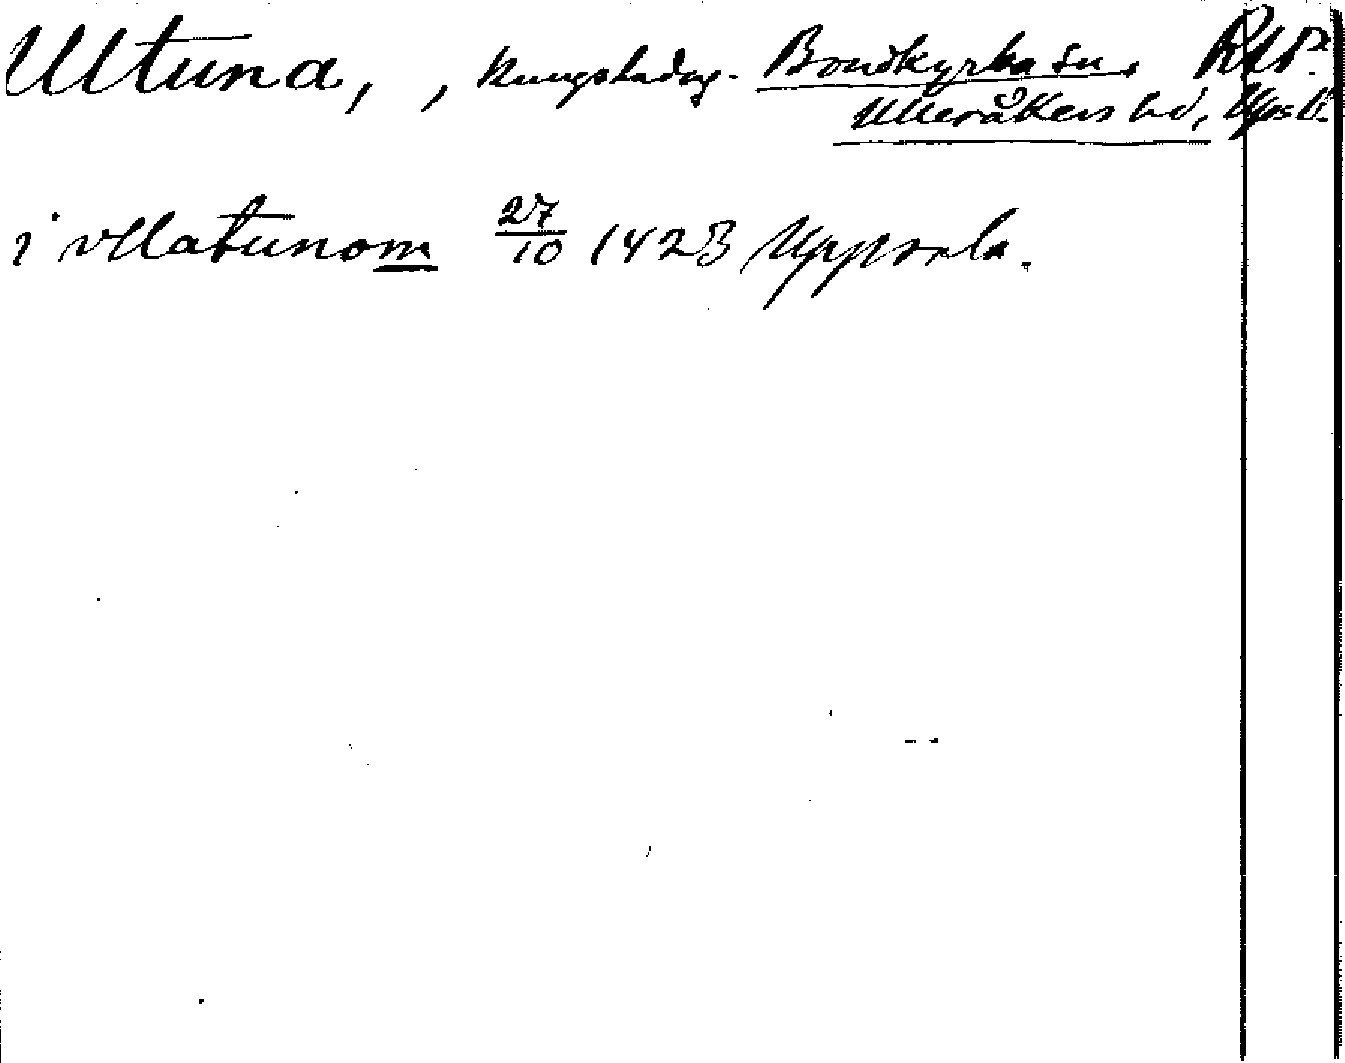 Ultuna, , kungsladug. Bondkyrka sn. RAP.
Ulleråkers hd, Ups. l.
i vllatunom 27/10 1423 Uppsala.